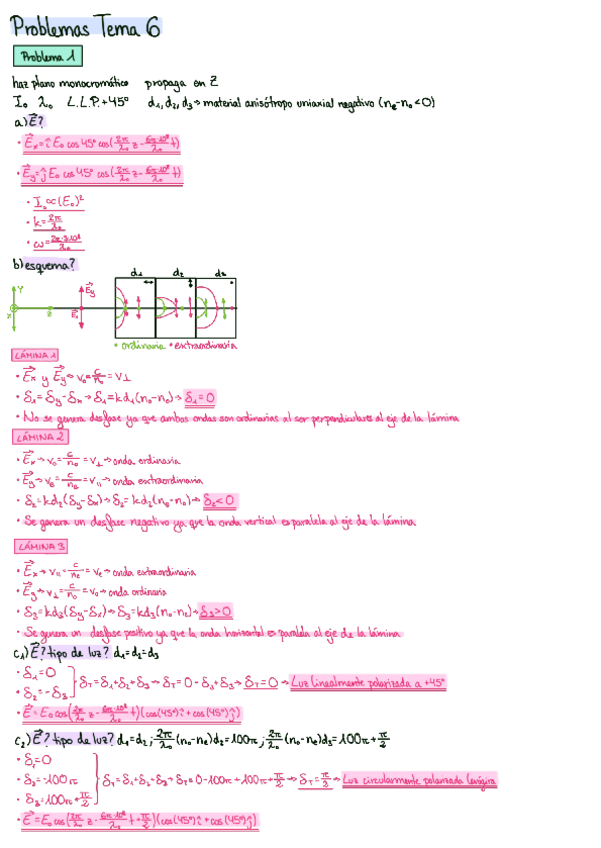 Problemas Tema 6
Problema 1
haz plano monocromático propaga en Z
I₀ λ₀ L.L.P.+45° d₁, d₂, d₃→material anisótropo uniaxial negativo (nₑ-n₀<0)
a) E⃗?
• E⃗ₓ=î E₀ cos 45° cos(2π/λ₀ z - 6π·10⁸/λ₀ t)
• E⃗y=ĵ E₀ cos 45° cos(2π/λ₀ z - 6π·10⁸/λ₀ t)
• I₀∝(E₀)²
• k=2π/λ₀
• ω=2π·3·10⁸/λ₀
b) esquema?
d₁ d₂ d₃
Y X Z E⃗y E⃗ₓ
• ordinaria • extraordinaria
LÁMINA 1
• E⃗ₓ y E⃗y→v₀=c/n₀=v⊥
• δ₁=δy-δₓ→δ₁=kd₁(n₀-n₀)→δ₁=0
• No se genera desfase ya que ambas ondas son ordinarias al ser perpendiculares al eje de la lámina
LÁMINA 2
• E⃗ₓ→v₀=c/n₀=v⊥→onda ordinaria
• E⃗y→vₑ=c/nₑ=v∥→onda extraordinaria
• δ₂=kd₂(δy-δₓ)→δ₂=kd₂(nₑ-n₀)→δ₂<0
• Se genera un desfase negativo ya que la onda vertical es paralela al eje de la lámina
LÁMINA 3
• E⃗ₓ→v∥=c/nₑ=vₑ→onda extraordinaria
• E⃗y→v⊥=c/n₀=v₀→onda ordinaria
• δ₃=kd₃(δy-δₓ)→δ₃=kd₃(n₀-nₑ)→δ₃>0
• Se genera un desfase positivo ya que la onda horizontal es paralela al eje de la lámina
c₁) E⃗? tipo de luz? d₁=d₂=d₃
• δ₁=0
• δ₂=-δ₃ } δT=δ₁+δ₂+δ₃→δT=0-δ₃+δ₃→δT=0→Luz linealmente polarizada a +45°
• E⃗=E₀cos(2π/λ₀ z - 6π·10⁸/λ₀ t)(cos(45°)î+cos(45°)ĵ)
c₂) E⃗? tipo de luz? d₁=d₂; 2π/λ₀(n₀-nₑ)d₂=100π; 2π/λ₀(n₀-nₑ)d₃=100π+π/2
• δ₁=0
• δ₂=-100π } δT=δ₁+δ₂+δ₃→δT=0-100π+100π+π/2→δT=π/2→Luz circularmente polarizada levógira
• δ₃=100π+π/2
• E⃗=E₀cos(2π/λ₀ z - 6π·10⁸/λ₀ t+π/2)(cos(45°)î+cos(45°)ĵ)